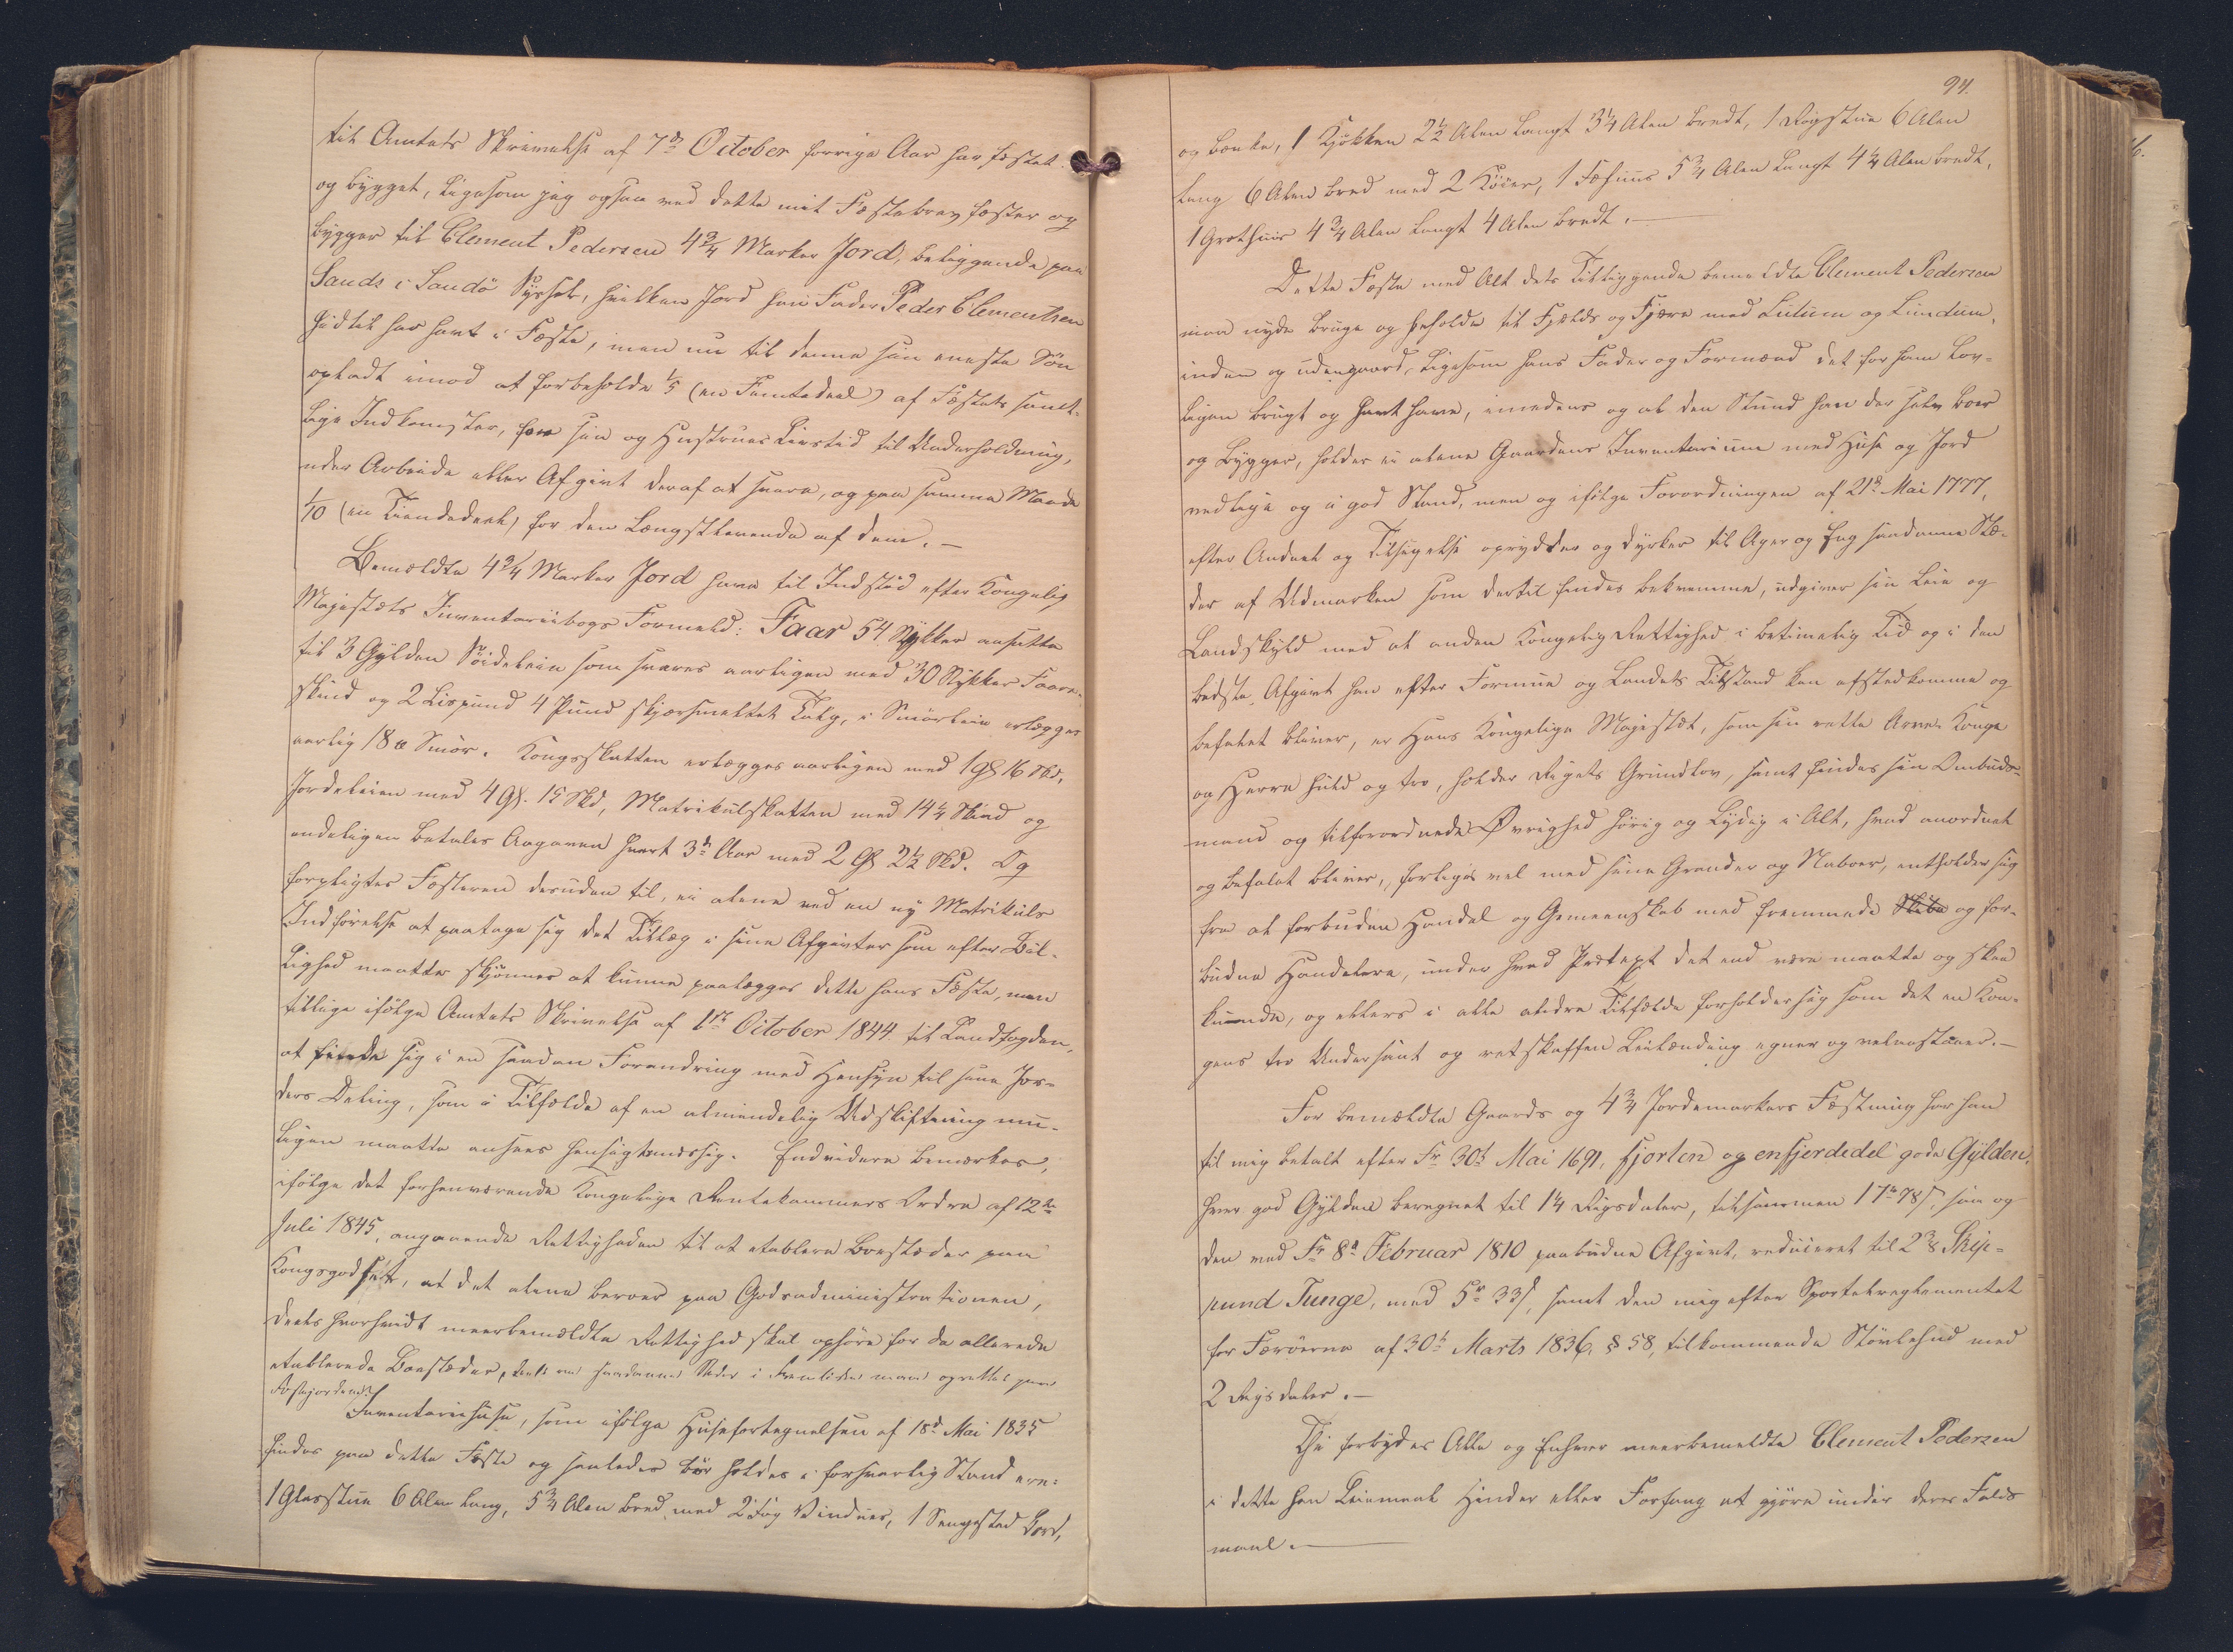 til Amtets Skrivelse af 7de October forrige Aar har fæstet
og bygget, ligesom jeg ogsaa ved dette mit Fæstebrev fæster og
bygger til Clement Pedersen 4 3/4 Marker Jord, beliggende paa
Sands i Sandö Syssel, hvilken Jord hans Fader Peder Clementsen
hidtil har havt i Fæste, men nu til denne sin eneste Sön
opladt imod at forbeholde 1/5 (en Femtedeel) af Fæstets samt-
lige Indkomster, for sin og Hustrues Livstid til Underholdning,
uden Arbeide eller Afgivt deraf at svare, og paa samme Maade
1/10 (en Tiendedeel) for den Længstlevende af dem. —
Bemældte 4 3/4 Marker Jord have til Indstöd efter Kongelig
Majestæts Inventariibogs Formeld: Faar 54 Stykker ansatte
til 3 Gylden Söideleie som svares aarligen med 30 Stykker Faare-
skind og 2 Lispund 4 Pund skjærsmeltet Talg, i Smörleie erlægges
aarlig 18 ℔ Smör. Kongsskatten erlægges aarligen med 1 Gl 16 Skd,
Jordeleien med 4 Gl. 15 Skd, Matrikulskatten med 14 1/4 Skind og
endeligen betales Aagaven hvert 3die Aar med 2 Gl 2 1/2 Skd. Og
forpligtes Fæsteren desuden til, ei alene ved en ny Matrikuls
Indförelse at paatage sig det Tillæg i sine Afgivter som efter Bil-
lighed maatte skjönnes at kunne paalægges dette hans Fæste, men
tillige ifölge Amtets Skrivelse af 1ste October 1844 til Landfogden,
at finde sig i en saadan Forandring med Hensyn til sine Jor-
ders Deling, som i Tilfælde af en almindelig Udskiftning mu-
ligen maatte ansees hensigtsmæssig. Endvidere bemærkes,
ifölge det forhenværende Kongelige Rentekammers Ordre af 12te
Juli 1845, angaaende Rettigheden til at etablere Boesteder paa
Kongsgodset, at det alene beroer paa Godsadministrationen,
deels hvorvidt meerbemældte Rettighed skal ophöre for de allerede
etablerede Boesteder, deels om saadanne Steder i Fremtiden maae oprettes paa
Fæstejorderne.
Inventariihuse, som ifölge Huusefortegnelsen af 18de Mai 1835
findes paa dette Fæste og saaledes bör holdes i forsvarlig Stand ere:
1 Glasstue 6 Alen lang, 5 3/4 Alen bred, med 2 Fag Vinduer, 1 Sengested, Bord,
94.
og bænke, 1 Kjökken 2 1/2 Alen langt 3 1/4 Alen bredt, 1 Rögstue 6 Alen
lang 6 Alen bred med 2 Köier, 1 Fæhuus 5 3/4 Alen langt 4 1/4 Alen bredt,
1 Grothuus 4 3/4 Alen langt 4 Alen bredt. —
Dette Fæste med Alt dets Tilliggende bemeldte Clement Pedersen
maa nyde bruge og beholde til Fjelds og Fjære med Lutum og Lundum,
inden og udengaard, ligesom hans Fader og Formænd det for ham lov-
ligen brugt og havt have, imedens og al den Stund han der selv boer
og bygger, holder ei alene Gaardens Inventarium med Huse og Jord
vedlige og i god Stand, men og ifölge Forordningen af 21de Mai 1777,
efter Andeel og Tilsigelse oprydder og dyrker til Ager og Eng saadanne Stæ-
der af Udmarken som dertil findes bekvemme, udgiver sin Leie og
Landskyld med al anden Kongelig Rettighed i betimelig Tid og i den
bedste Afgivt han efter Formue og Landets Tilstand kan afstedkomme og
befalet bliver, er Hans Kongelige Majestæt, som sin rette Arve-Konge
og Herre huld og tro, holder Rigets Grundlov, samt findes sin Ombuds-
mand og tilforordnede Øvrighed hörig og lydig i Alt, hvad anordnet
og befalet bliver, forliges vel med sine Grander og Naboer, entholder sig
fra al forbuden Handel og Gemeenskab med fremmede Skibe og for-
budne Handelere, under hvad Prætext det end være maatte og skee
kunde, og ellers i alle andre Tilfælde forholder sig som det en Kon-
gens tro Undersaat og retskaffen Leilænding egner og velanstaaer. —
For bemældte Gaards og 4 3/4 Jordemarkers Fæstning har han
til mig betalt efter Fr 30te Mai 1691, fjorten og enfjerdedel gode Gylden,
hver god Gylden beregnet til 1 1/4 Rigsdaler, tilsammen 17 rd 78 s, saa og
den ved Fr 8de Februar 1810 paabudne Afgivt, reduceret til 2 3/8 Skip-
pund Tunge, med 5 r 33 s, samt den mig efter Sportelreglementet
for Færöerne af 30te Marts 1836, § 58, tilkommende Stövlehud med
2 Rigsdaler. —
Thi forbydes Alle og Enhver meerbemeldte Clement Pedersen
i dette hans Leiemaal Hinder eller Forfang at gjöre under deres Falds
maal. —